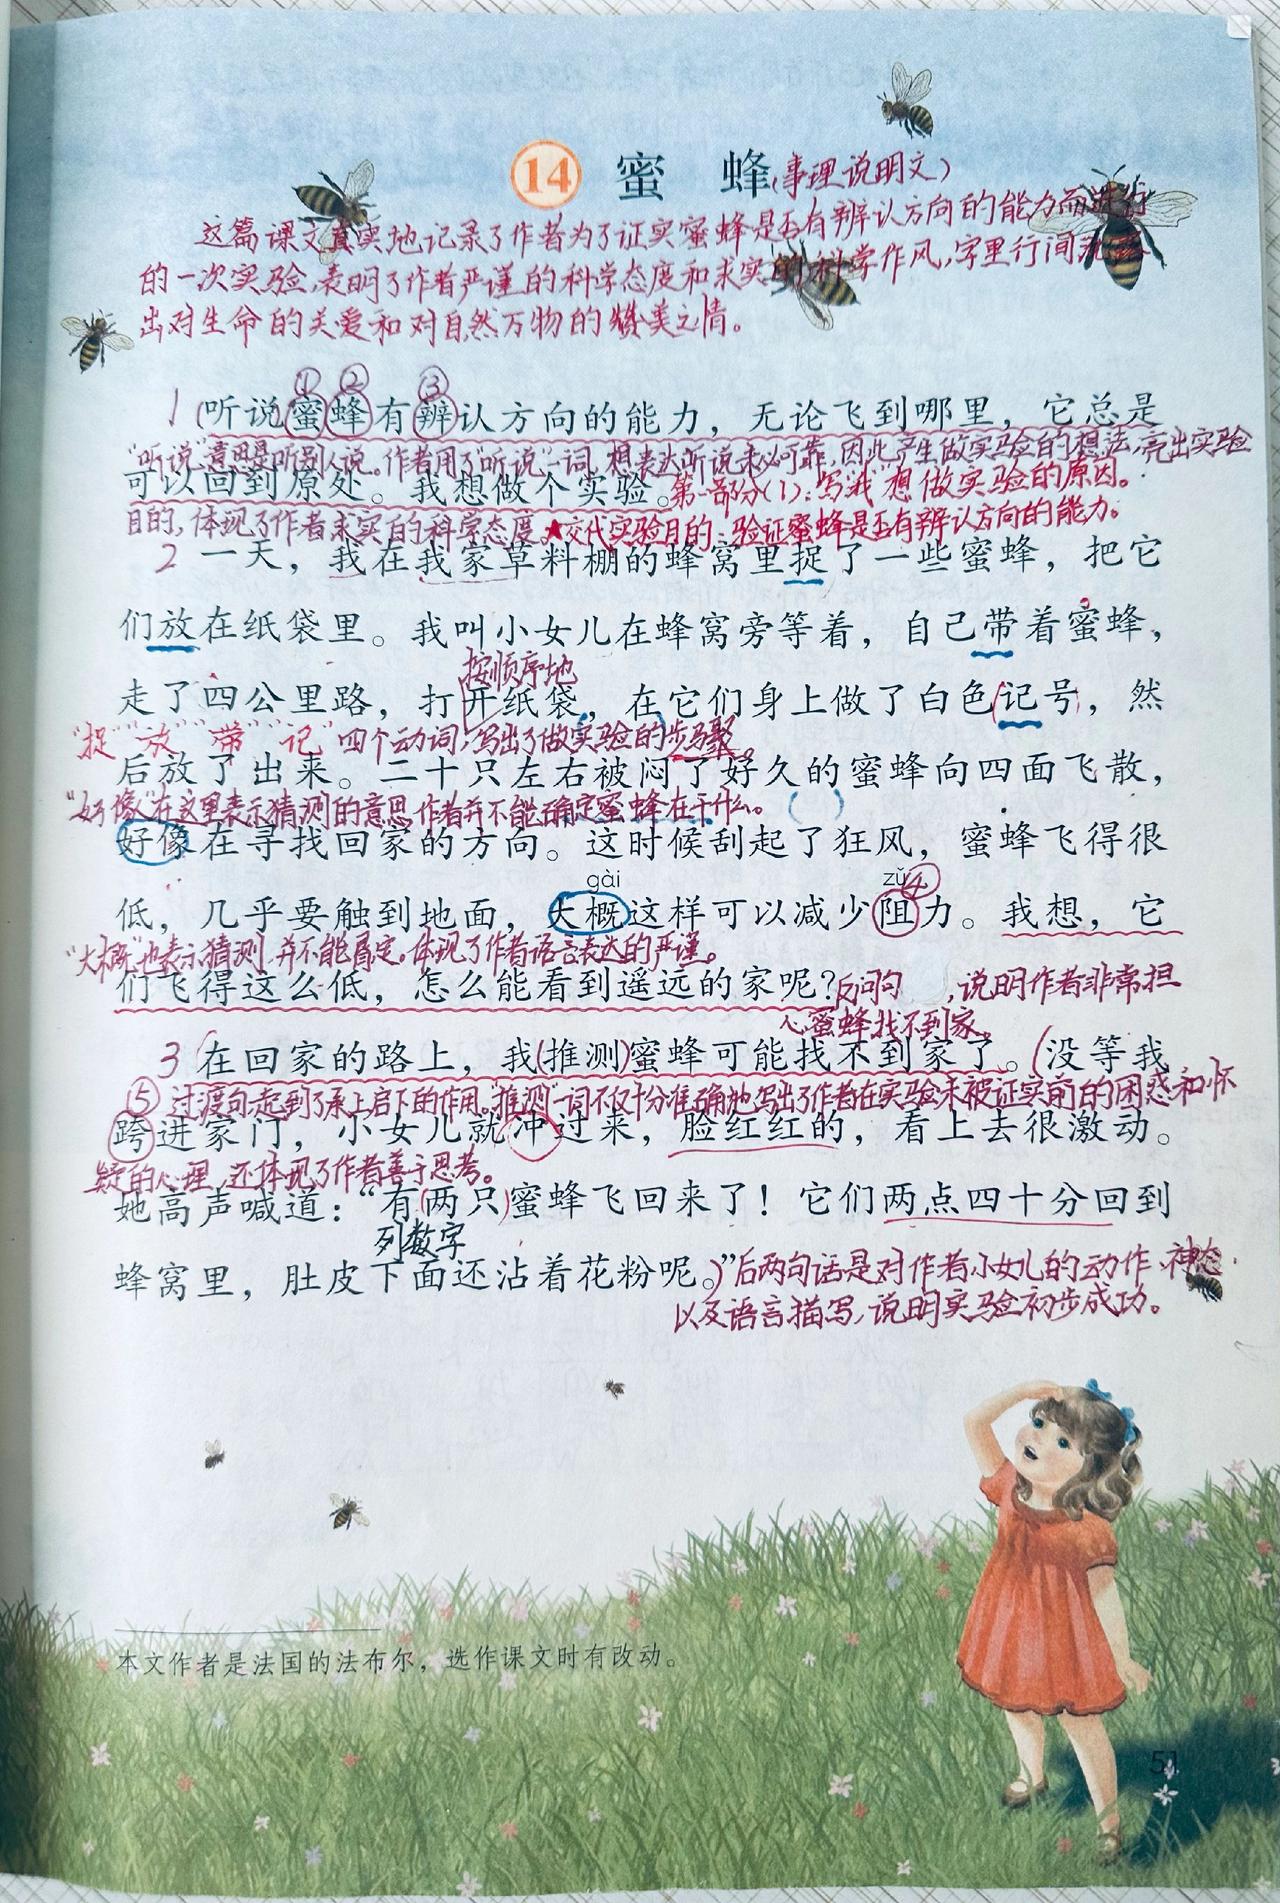 14 蜜 蜂(事理说明文)
这篇课文真实地记录了作者为了证实蜜蜂是否有辨认方向的能力而进行
的一次实验,表明了作者严谨的科学态度和求实的科学作风,字里行间流露
出对生命的关爱和对自然万物的赞美之情。
① ② ③
1(听说蜜蜂有辨认方向的能力，无论飞到哪里，它总是
“听说”意思是听别人说。作者用了“听说”一词,想表达听说未必可靠,因此产生做实验的想法,亮出实验
可以回到原处。我想做个实验。第一部分(1):写“我”想做实验的原因。
目的,体现了作者求实的科学态度。★交代实验目的:验证蜜蜂是否有辨认方向的能力。
2 一天，我在我家草料棚的蜂窝里捉了一些蜜蜂，把它
们放在纸袋里。我叫小女儿在蜂窝旁等着，自己带着蜜蜂，
按顺序地
走了四公里路，打开纸袋，在它们身上做了白色(记号，然
“捉”“放”“带”“记”四个动词,写出了做实验的步骤。
后放了出来。二十只左右被闷了好久的蜜蜂向四面飞散，
“好像”在这里表示猜测的意思,作者并不能确定蜜蜂在干什么。
好像在寻找回家的方向。这时候刮起了狂风，蜜蜂飞得很
gài zǔ ④
低，几乎要触到地面，大概这样可以减少阻力。我想，它
“大概”也表示猜测,并不能肯定。体现了作者语言表达的严谨。
们飞得这么低，怎么能看到遥远的家呢?反问句,说明作者非常担
心蜜蜂找不到家。
3 在回家的路上，我(推测)蜜蜂可能找不到家了。(没等我
⑤ 过渡句,起到了承上启下的作用。“推测”一词不仅十分准确地写出了作者在实验未被证实前的困惑和怀
跨进家门，小女儿就冲过来，脸红红的，看上去很激动。
疑的心理,还体现了作者善于思考。
她高声喊道：“有(两只)蜜蜂飞回来了！它们两点四十分回到
列数字
蜂窝里，肚皮下面还沾着花粉呢。)”后两句话是对作者小女儿的动作、神态
以及语言描写,说明实验初步成功。
本文作者是法国的法布尔，选作课文时有改动。
51